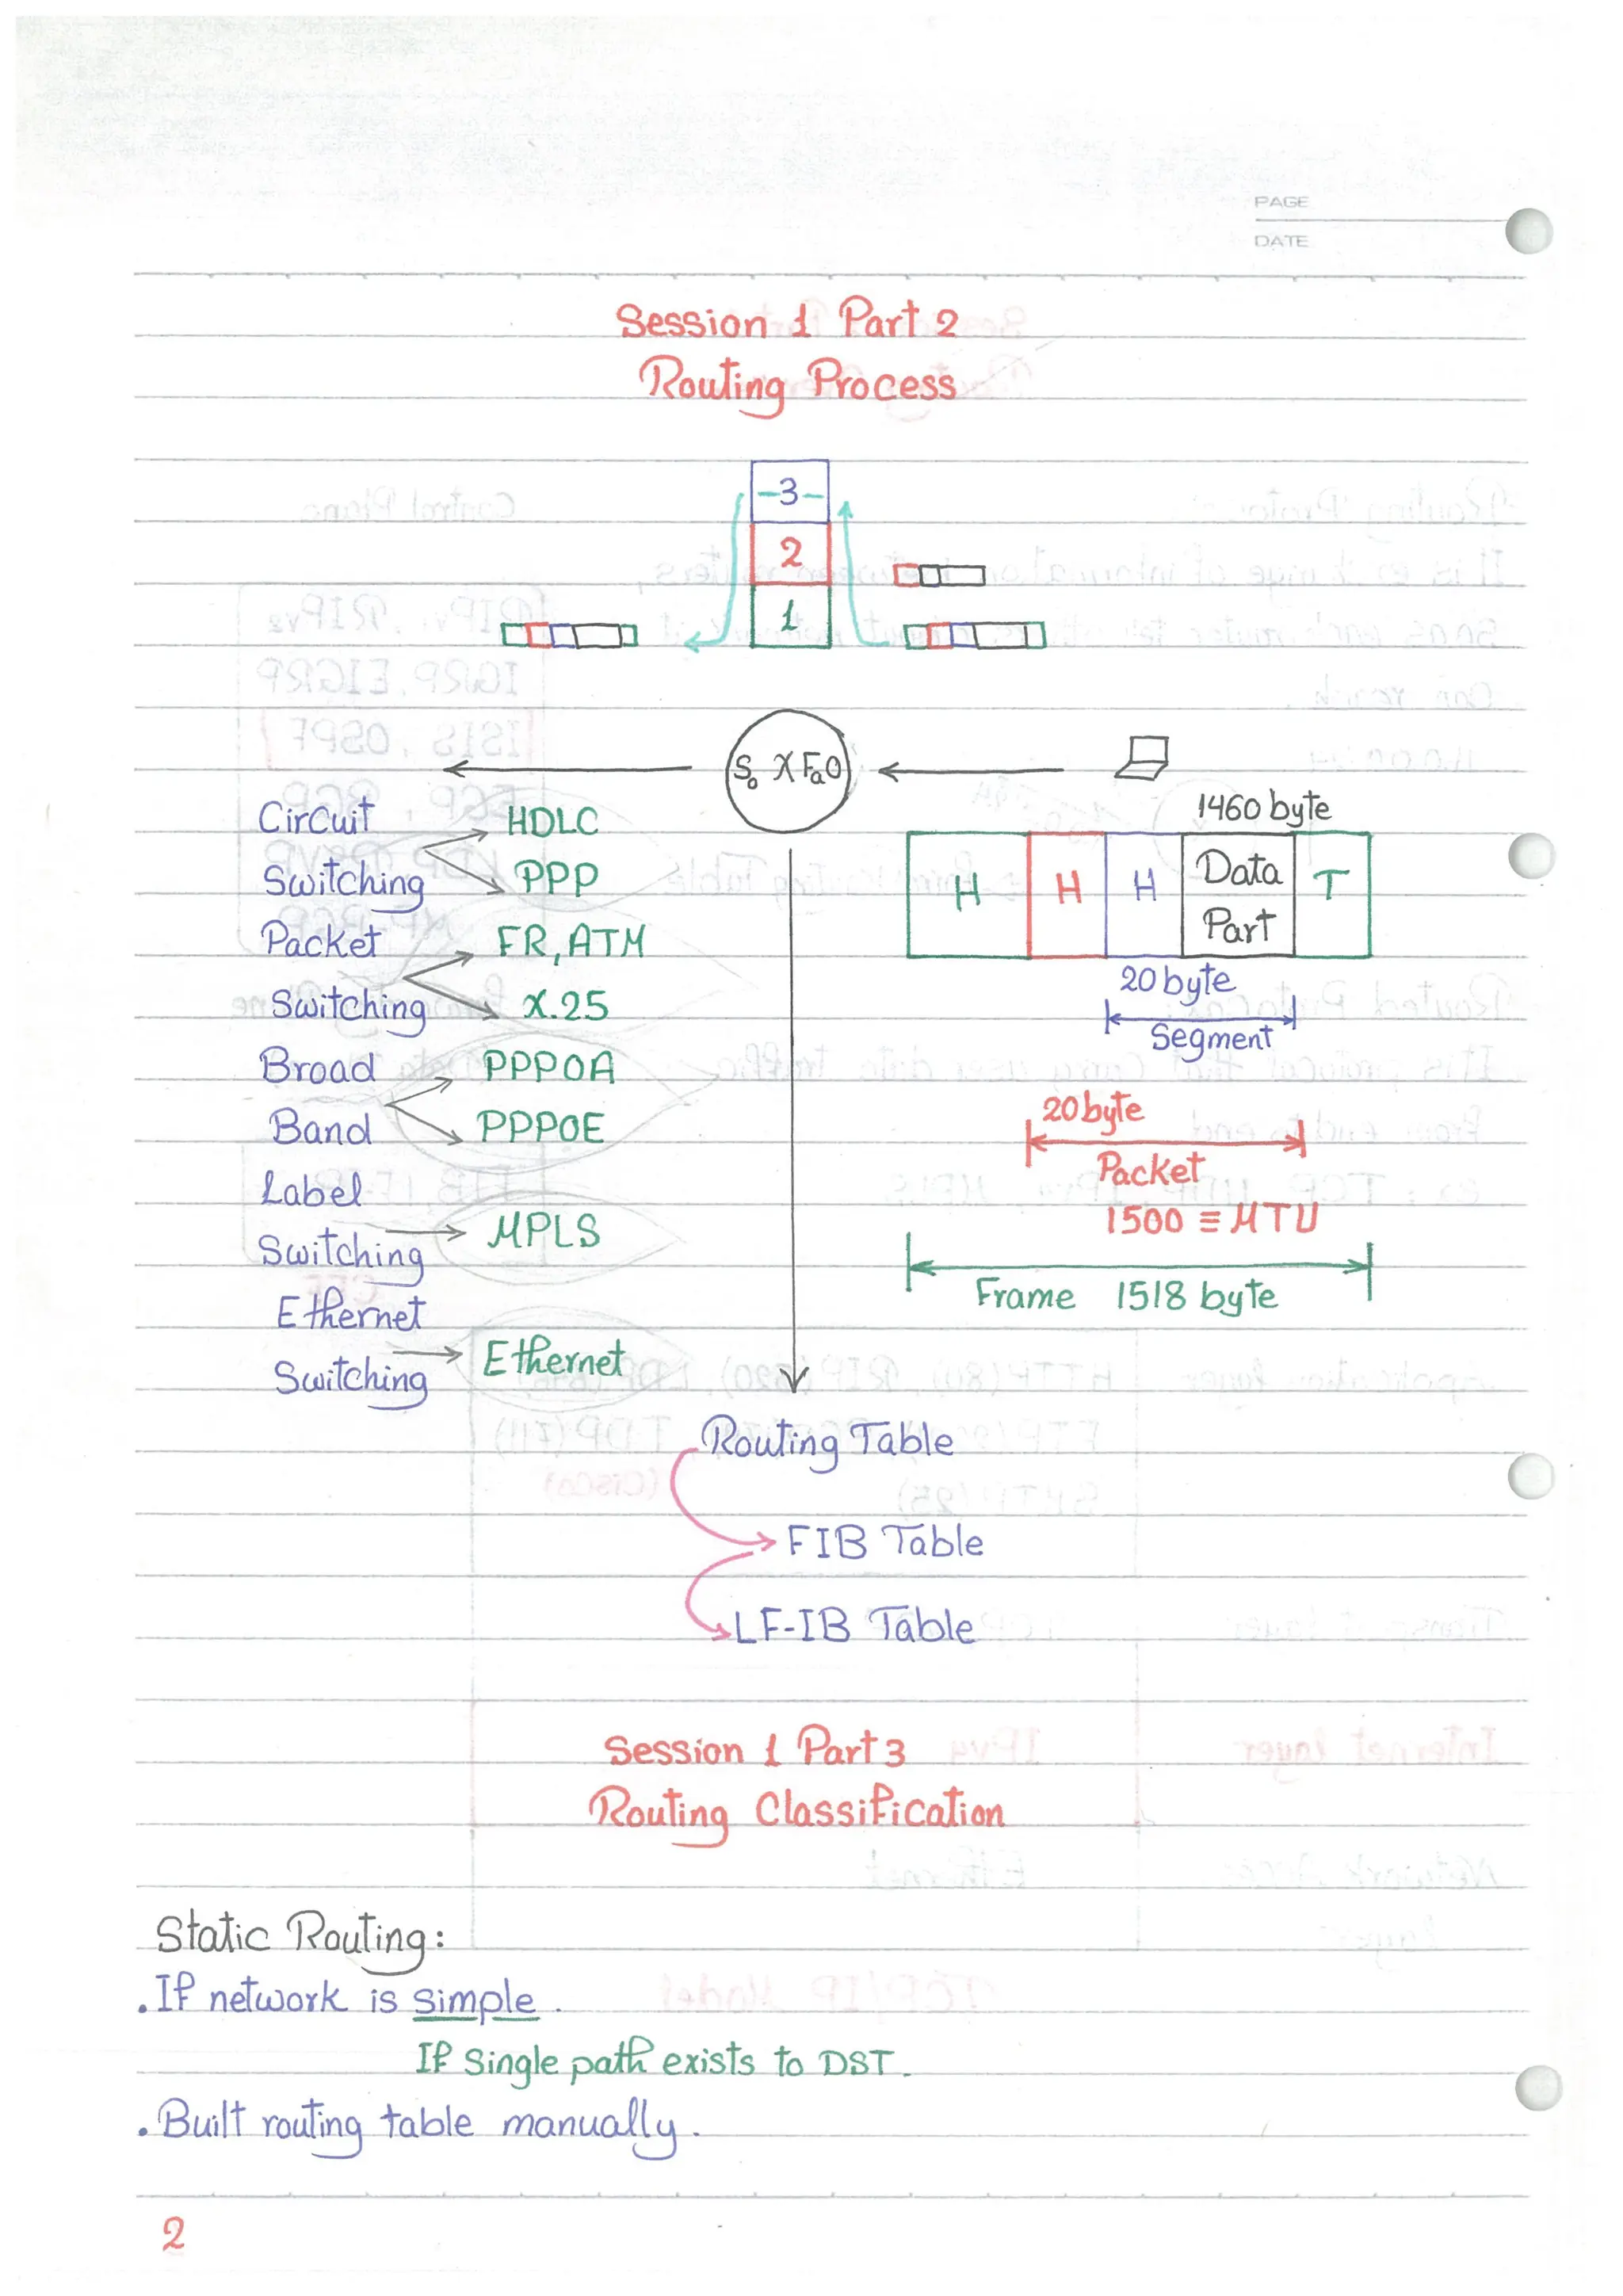 PAGE
DATE
Session 1 Part 2
Routing Process
-3-
2
1
S0 X Fa0
1460 byte
H H H Data Part T
20 byte
Segment
20 byte
Packet
1500 ≡ MTU
Frame 1518 byte
Circuit
Switching
HDLC
PPP
Packet
Switching
FR, ATM
X.25
Broad
Band
PPPOA
PPPOE
Label
Switching
MPLS
Ethernet
Switching
Ethernet
Routing Table
FIB Table
LF-IB Table
Session 1 Part 3
Routing Classification
Static Routing:
. If network is simple.
If Single path exists to DST.
. Built routing table manually.
2